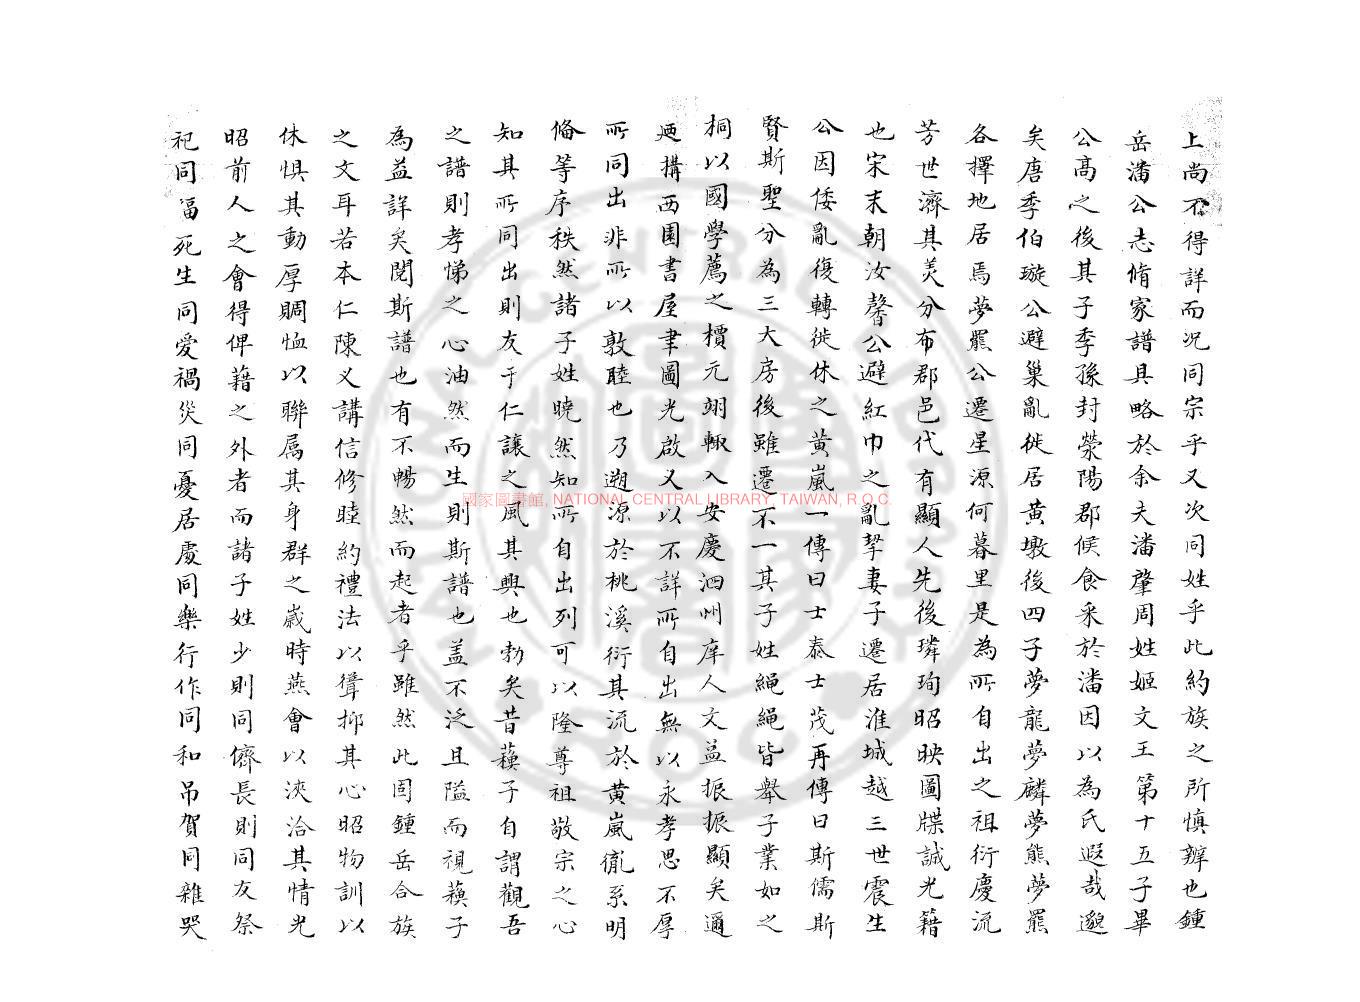 上尚不得詳而況同宗乎又次同姓乎此約族之所慎辨也鍾
岳潘公志脩家譜具略於余夫潘肇周姓姬文王第十五子畢
公高之後其子季孫封滎陽郡候食采於潘因以為氏遐哉邈
矣唐季伯璇公避巢亂徙居黃墩後四子夢龍夢麟夢熊夢羆
各擇地居焉夢羆公遷星源何暮里是為所自出之祖衍慶流
芳世濟其美分布郡邑代有顯人先後璘珣昭映圖牒誠光籍
也宋末朝汝馨公避紅巾之亂挈妻子遷居淮城越三世震生
公因倭亂復轉徙休之黃嵐一傳曰士泰士茂再傳曰斯儒斯
賢斯聖分為三大房後雖遷不一其子姓繩繩皆舉子業如之
桐以國學薦之櫝元翊輙入安慶泗州庠人文益振振顯矣邇
廼構西園書屋聿圖光啟又以不詳所自出無以永孝思不厚
所同出非所以敦睦也乃遡源於桃溪衍其流於黃嵐㣧系明
偹等序秩然諸子姓曉然知所自出列可以隆尊祖敬宗之心
知其所同出則友于仁讓之風其興也勃矣昔蘓子自謂觀吾
之譜則孝悌之心油然而生則斯譜也盖不泛且隘而視蘓子
為益詳矣閱斯譜也有不暢然而起者乎雖然此固鍾岳合族
之文耳若本仁陳义講信修睦約禮法以聳抑其心昭物訓以
休惧其動厚賙恤以聯属其身群之嵗時燕會以浹洽其情光
昭前人之會得俾藉之外者而諸子姓少則同儕長則同友祭
祀同福死生同愛禍災同憂居處同樂行作同和吊賀同雜哭
國家圖書館, NATIONAL CENTRAL LIBRARY, TAIWAN, R.O.C.